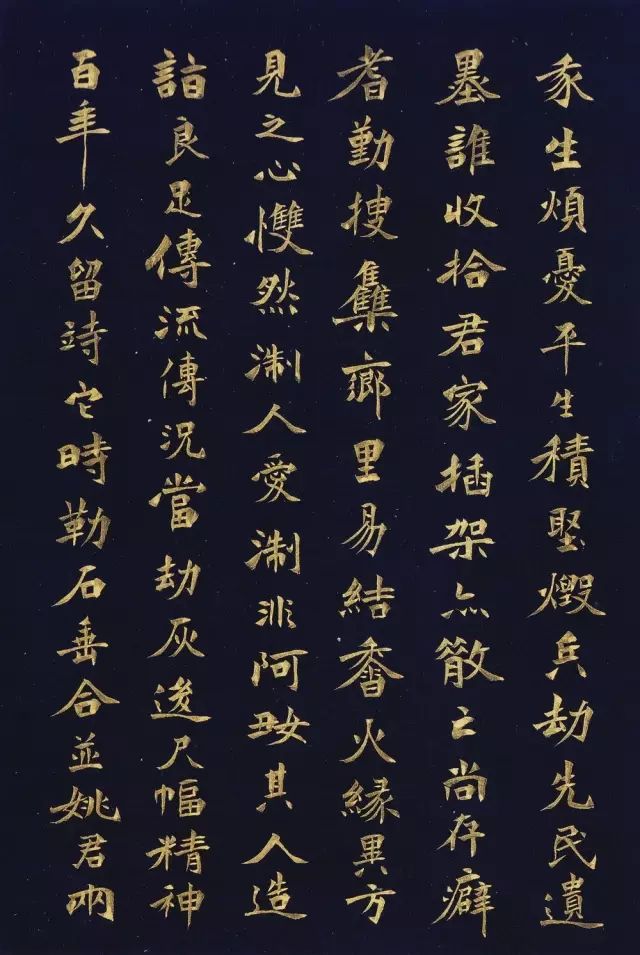 生煩憂平生積埾燬兵劫先民遺
墨誰收拾君家插架亦散亡尚存癖
耆勤搜集鄉里易結香火緣異方
見之心愯然淛人愛淛非阿好其人造
詣良足傳流傳況當劫灰後尺幅精神
百年久留詩它時勒石垂合並姚君兩